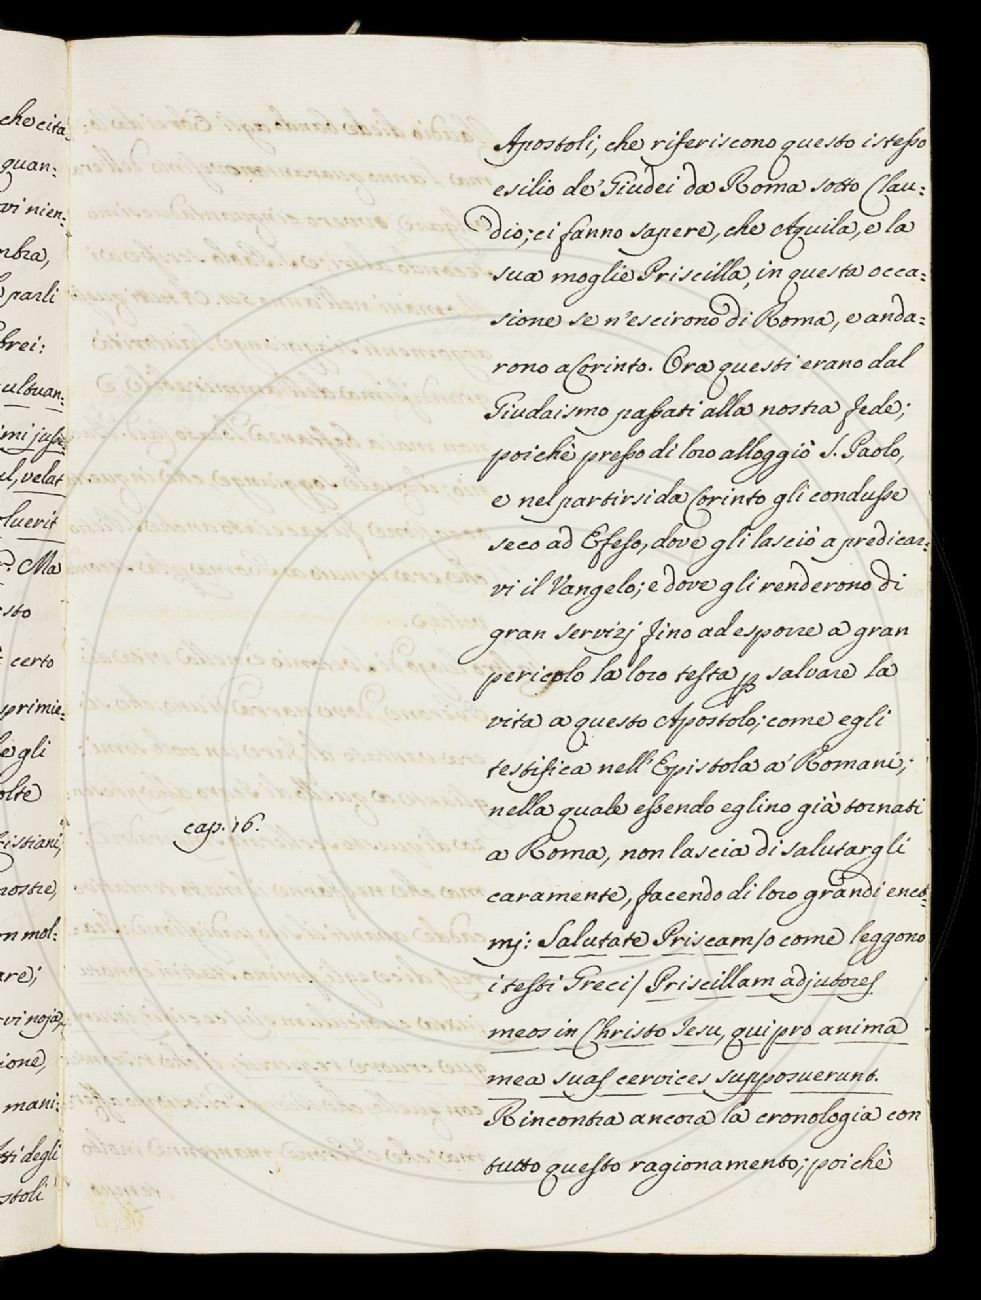 che cita:
quan:
vi nien:
mbra,
parli
brei:
cultuan:
imi jusse
ul, velat
oluerit
Ma
sto
certo
sprimie:
le gli
olte
ristiani,
nostre,
on mol:
are;
rvi noja,
ione,
mani:
tti degli
stoli
Apostoli, che riferiscono questo istesso
esilio de' Giudei da Roma sotto Clau:
dio; ci fanno sapere, che Aquila, e la
sua moglie Priscilla, in questa occa:
sione se n'escirono di Roma, e anda:
rono a Corinto. Ora questi erano dal
Giudaismo passati alla nostra fede;
poichè presso di loro alloggiò S. Paolo,
e nel partirsi da Corinto gli condusse
seco ad Efeso, dove gli lasciò a predicar:
vi il Vangelo; e dove gli renderono di
gran servizj fino ad esporre a gran
pericolo la loro testa ꝑ salvare la
vita a questo Apostolo; come egli
testifica nell'Epistola a' Romani;
nella quale essendo eglino già tornati
cap. 16.
a Roma, non lascia di salutargli
caramente, facendo di loro grandi enco:
mj: Salutate Priscam /o come leggono
i testi Greci/ Priscillam adjutores
meos in Christo Iesu, qui pro anima
mea suas cervices supposuerunt.
Rincontra ancora la cronologia con
tutto questo ragionamento; poichè